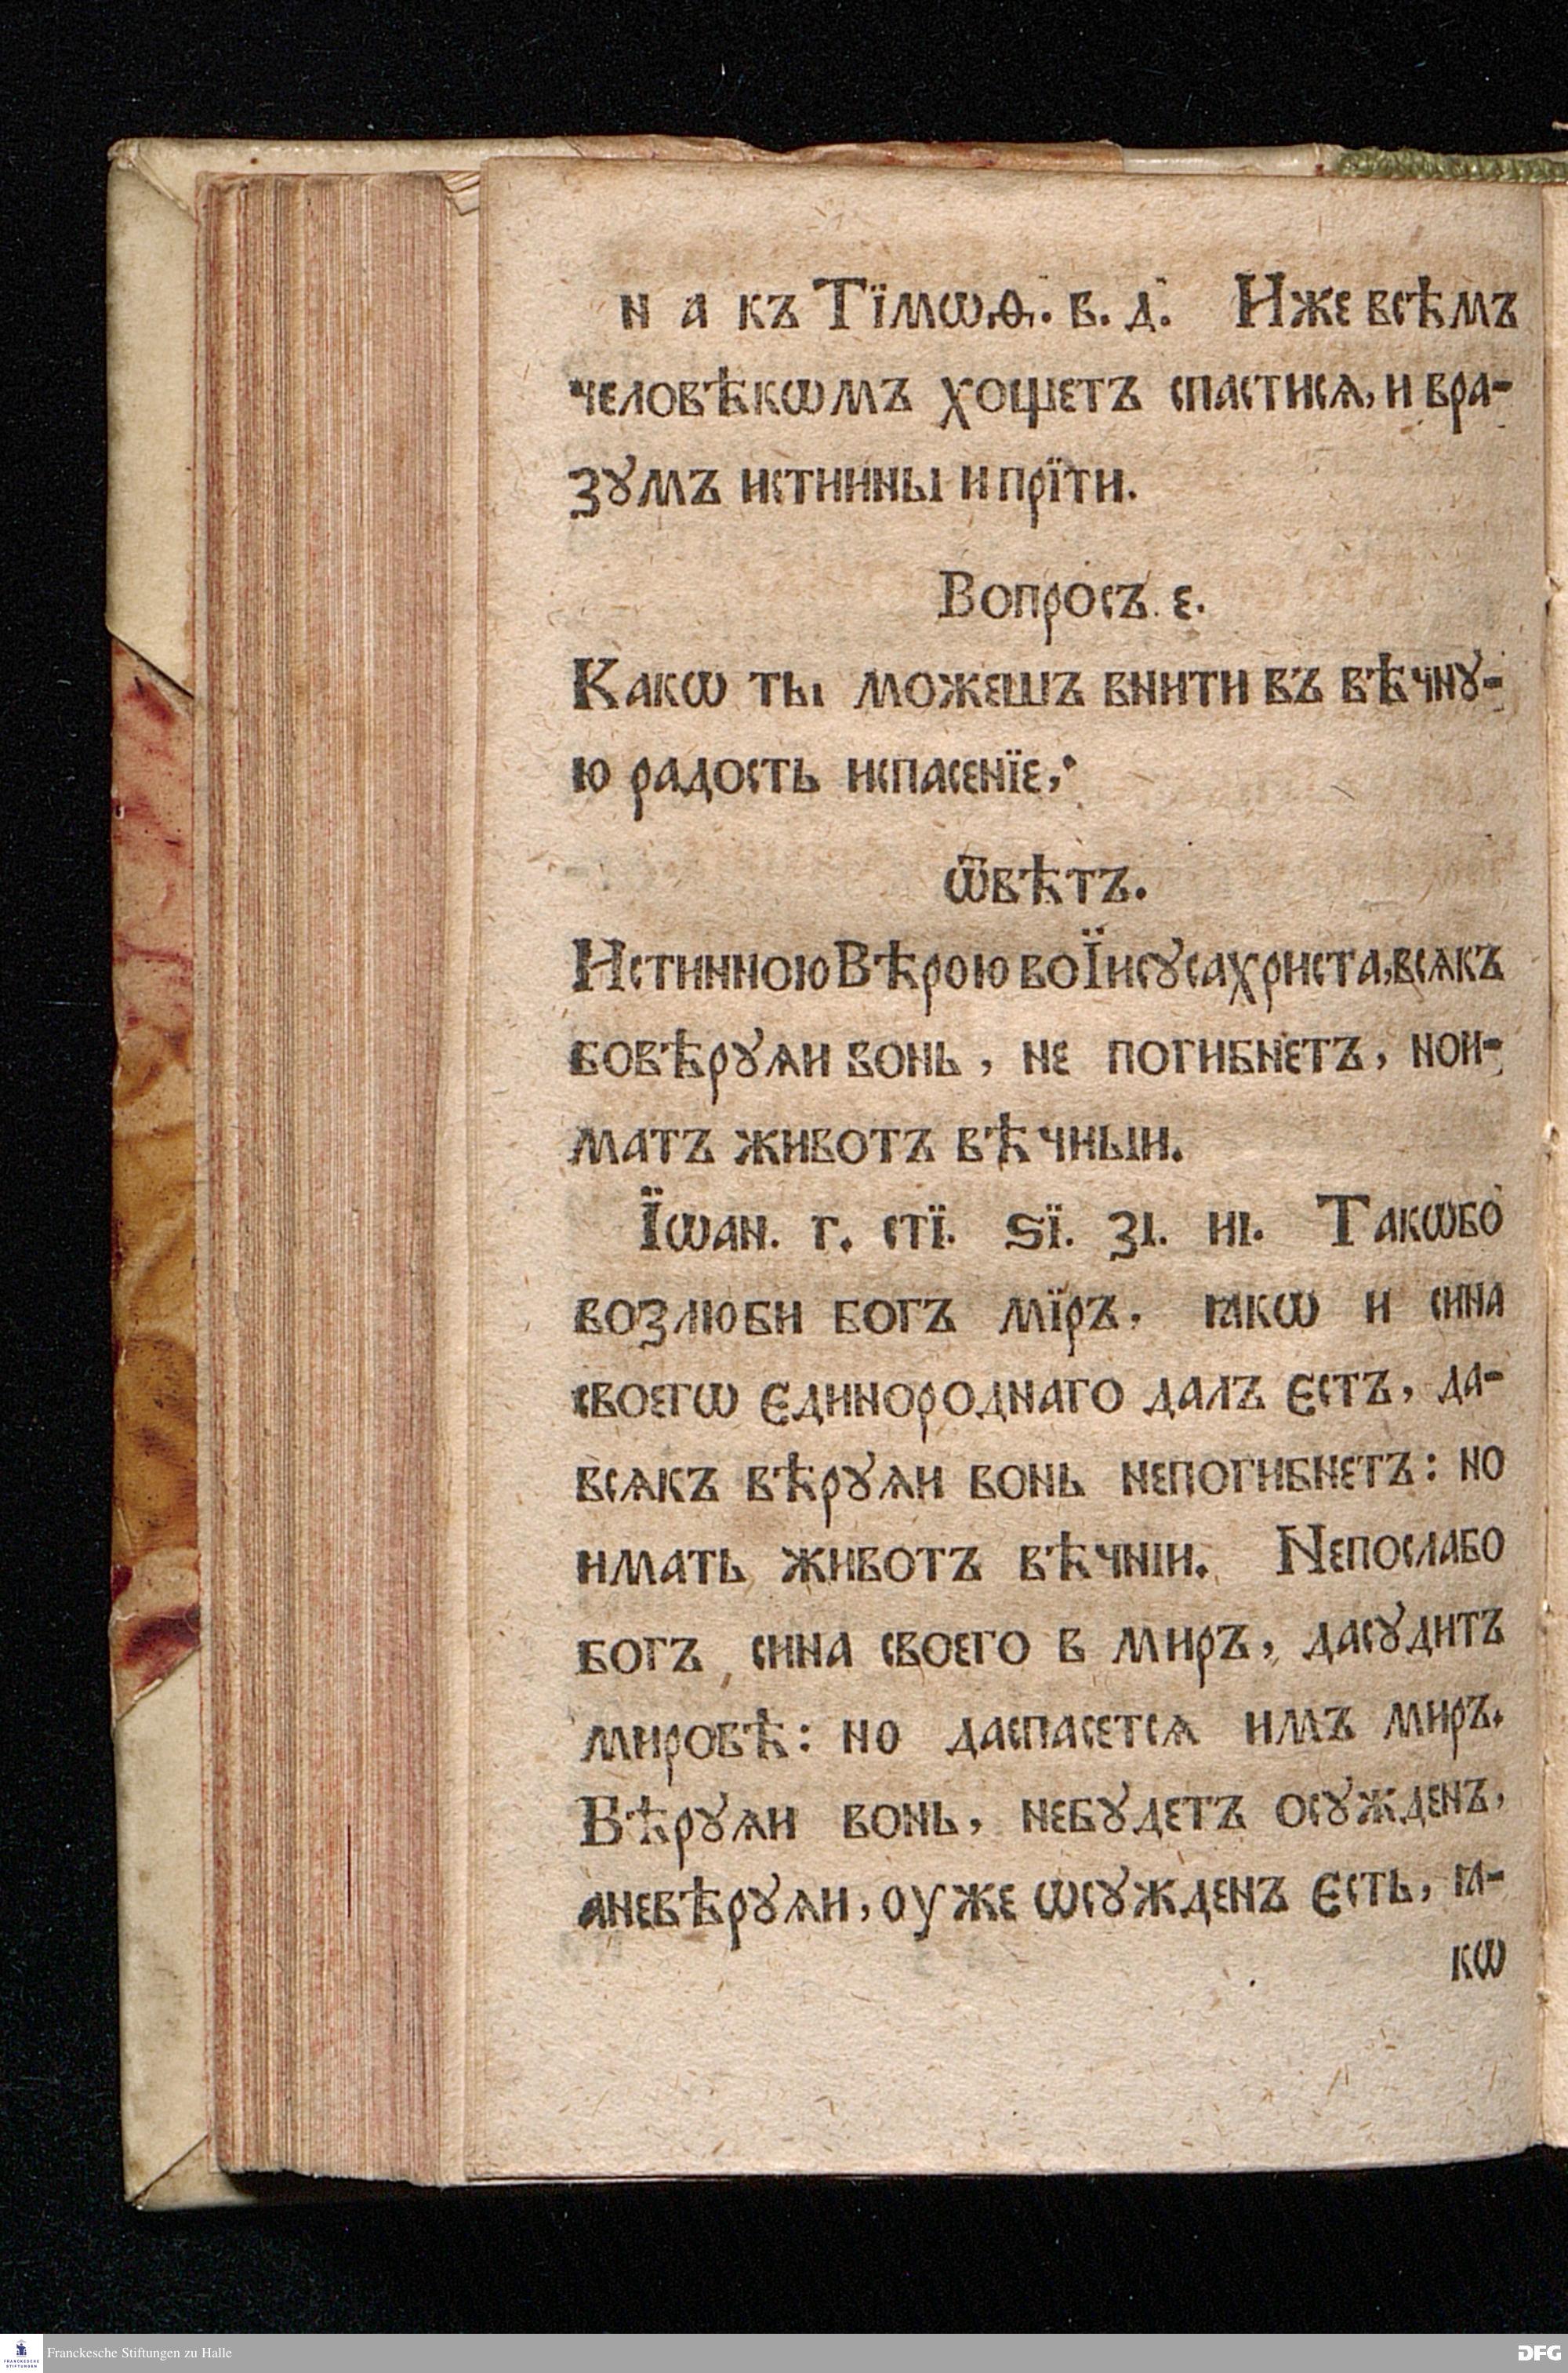 н а къ Тїмѡѳ. в. д. Иже всѣмъ
человѣкѡмъ хощетъ спастисѧ, и вра-
зꙋмъ истинны и прїти.
Вопросъ. є.
Какѡ ты можешъ внити въ вѣчнꙋ-
ю радость испасенїе,·
Ѿвѣтъ.
Истинною Вѣрою во Їисꙋса христа, всѧкъ
бовѣрꙋѧи вонь, не погибнетъ, нои-
матъ животъ вѣчныи.
Їѡан. г. стї. ѕї. зі. иі. Такѡбо
возлюби богъ мїръ, ꙗкѡ и сина
своегѡ єдинороднаго далъ єстъ, да-
всѧкъ вѣрꙋѧи вонь непогибнетъ: но
имать животъ вѣчніи. Непослабо
богъ сина своего в миръ, дасꙋдитъ
мировѣ: но даспасетсѧ имъ миръ.
Вѣрꙋѧи вонь, небꙋдетъ осꙋжденъ,
аневѣрꙋѧи, оуже ѡсꙋжденъ єсть, ꙗ-
кѡ
Franckesche Stiftungen zu Halle
DFG